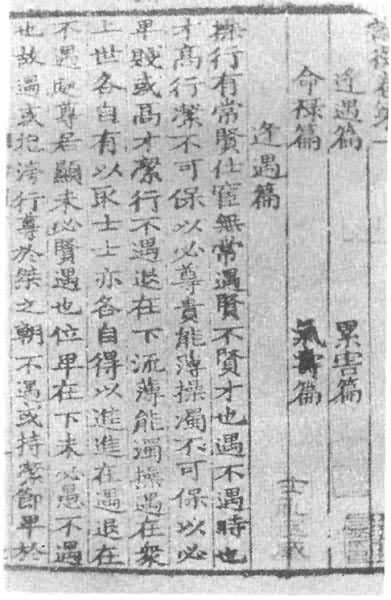 論衡卷第一
逢遇篇　累害篇
命祿篇　氣壽篇
逢遇篇
操行有常賢仕宦無常遇賢不賢才也遇不遇時也
才高行潔不可保以必尊貴能薄操濁不可保以必
卑賤或高才潔行不遇退在下流薄能濁操遇在衆
上世各自有以取士士亦各自得以進進在遇退在
不遇處尊居顯未必賢遇也位卑在下未必愚不遇
也故遇或抱洿行尊於桀之朝不遇或持潔節卑於